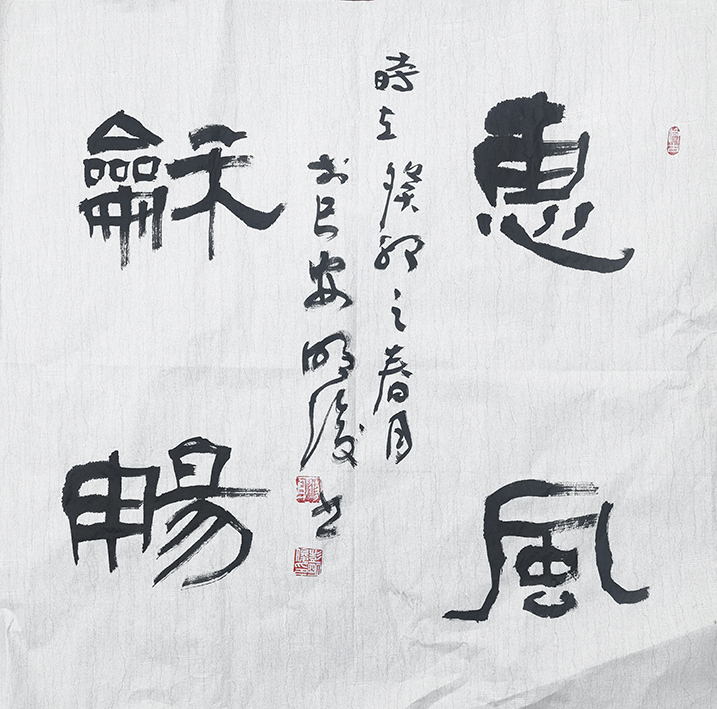 惠風
龢暢
時在癸卯之春月
於長安明俊書